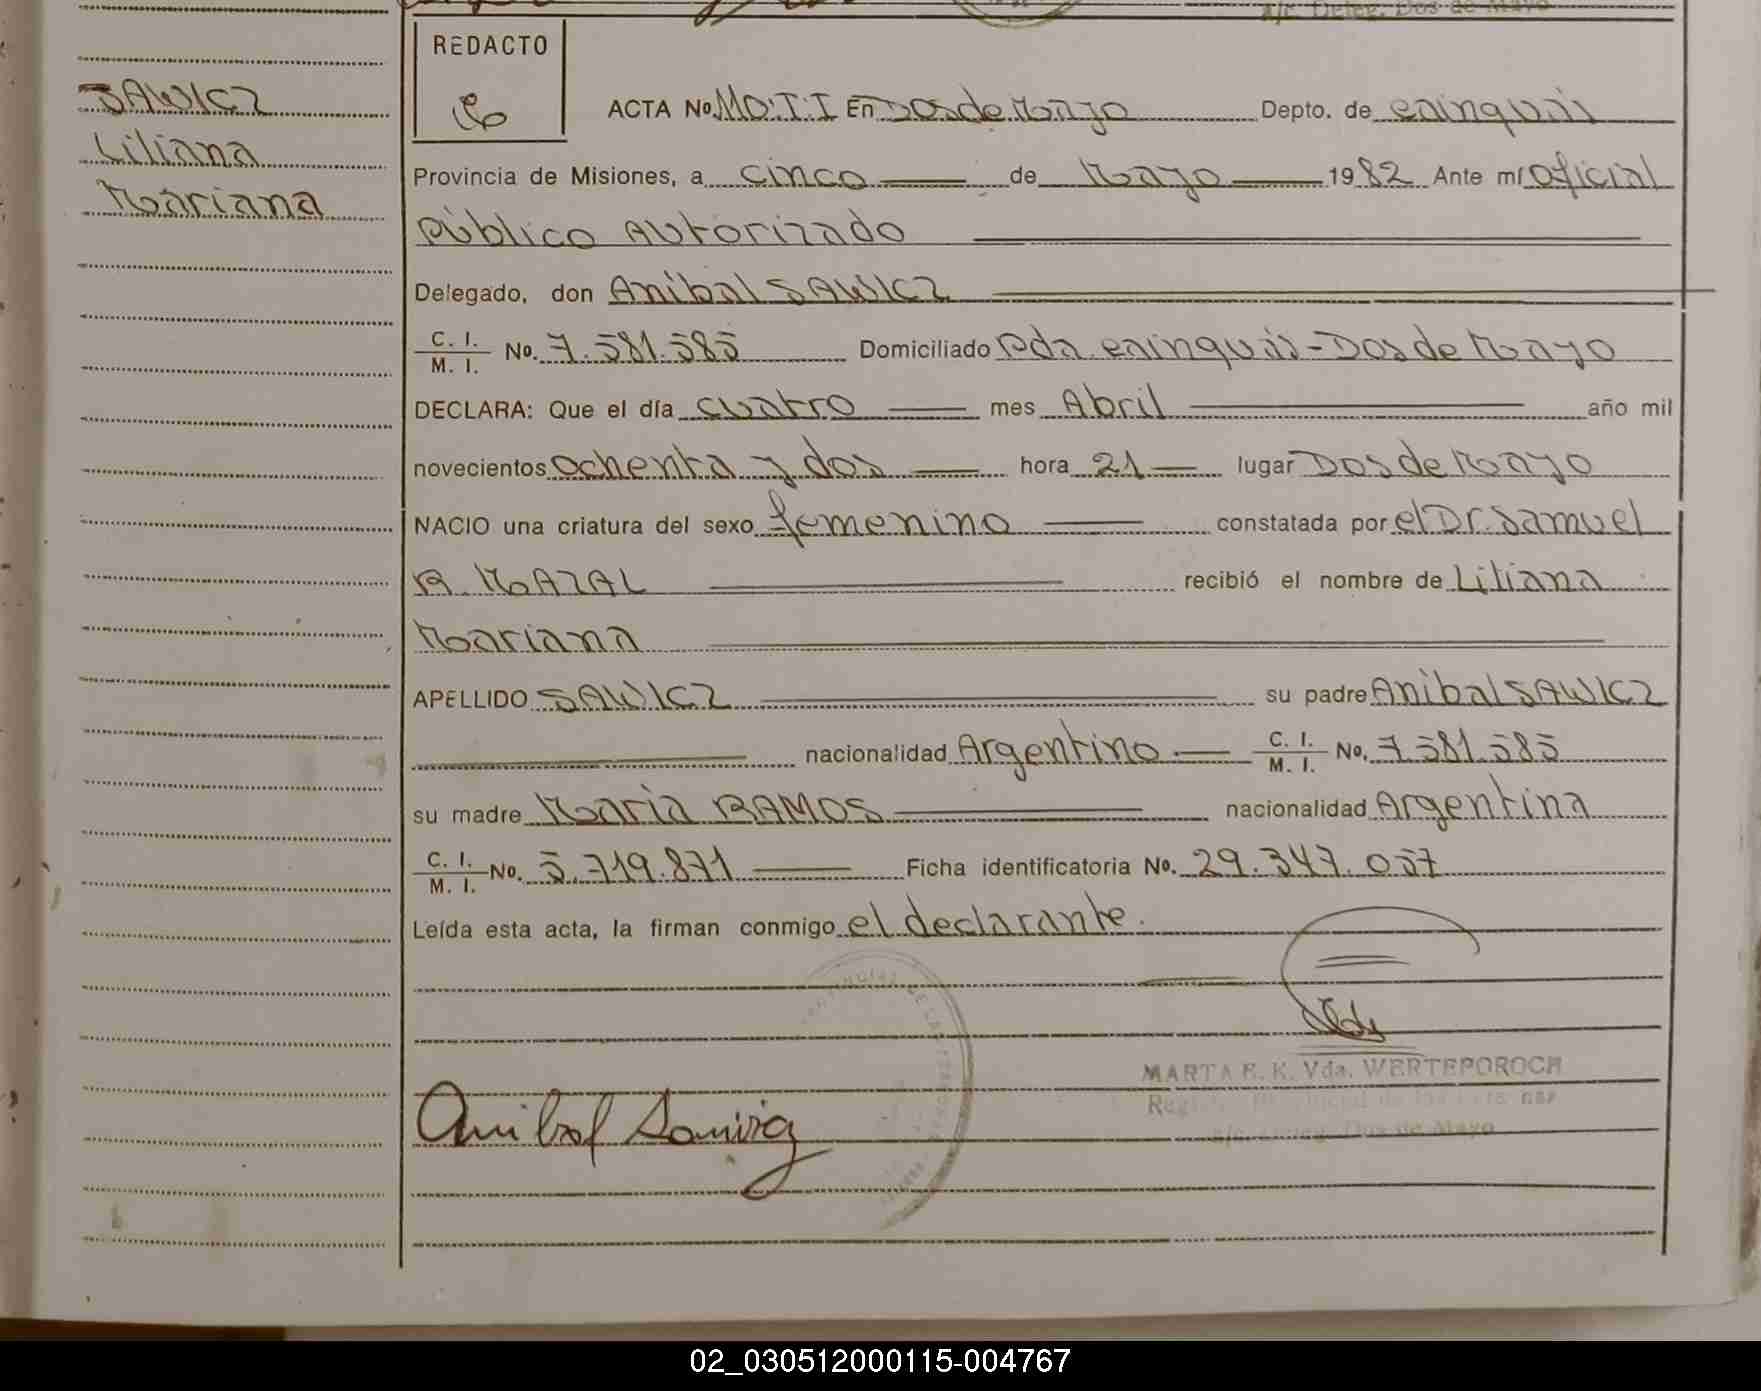 a/c. Deleg. Dos de Mayo
REDACTO
SAWICZ
Liliana
Mariana
ACTA No. 110:T:I En Dos de Mayo Depto. de Cainguás
Provincia de Misiones, a cinco de Mayo 1982 Ante mí Oficial
Público Autorizado
Delegado, don Anibal SAWICZ
C. I.
M. I. No. 7.581.585 Domiciliado Pda. Cainguás-Dos de Mayo
DECLARA: Que el día cuatro mes Abril año mil
novecientos ochenta y dos hora 21 lugar Dos de Mayo
NACIO una criatura del sexo femenino constatada por el Dr. Samuel
R. MAZAL recibió el nombre de Liliana
Mariana
APELLIDO SAWICZ su padre Anibal SAWICZ
nacionalidad Argentino C. I. M. I. No. 7.581.585
su madre Maria RAMOS nacionalidad Argentina
C. I.
M. I. No. 5.719.871 Ficha identificatoria No. 29.347.057
Leída esta acta, la firman conmigo el declarante.
MARTA E. K. Vda. WERTEPOROCH
a/c. Deleg. Dos de Mayo
Anibal Sawicz
02_030512000115-004767